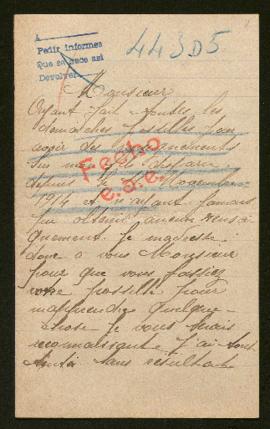 A
Pedir informes
que se hace asi
Devolver
44305
Monsieur
Ayant fait toutes les
demarches possibles pour
avoir des
sur mon
depuis le Novembre
1914 et n'ayant jamais
pu obtenir aucun rensei
gnement je m'adresse
donc a vous Monsieur
pour que vous fassiez
votre possible pour
m'apprendre quelque
chose Je vous serais
reconnaissante J'ai tout
tenté sans resultat
Fecho